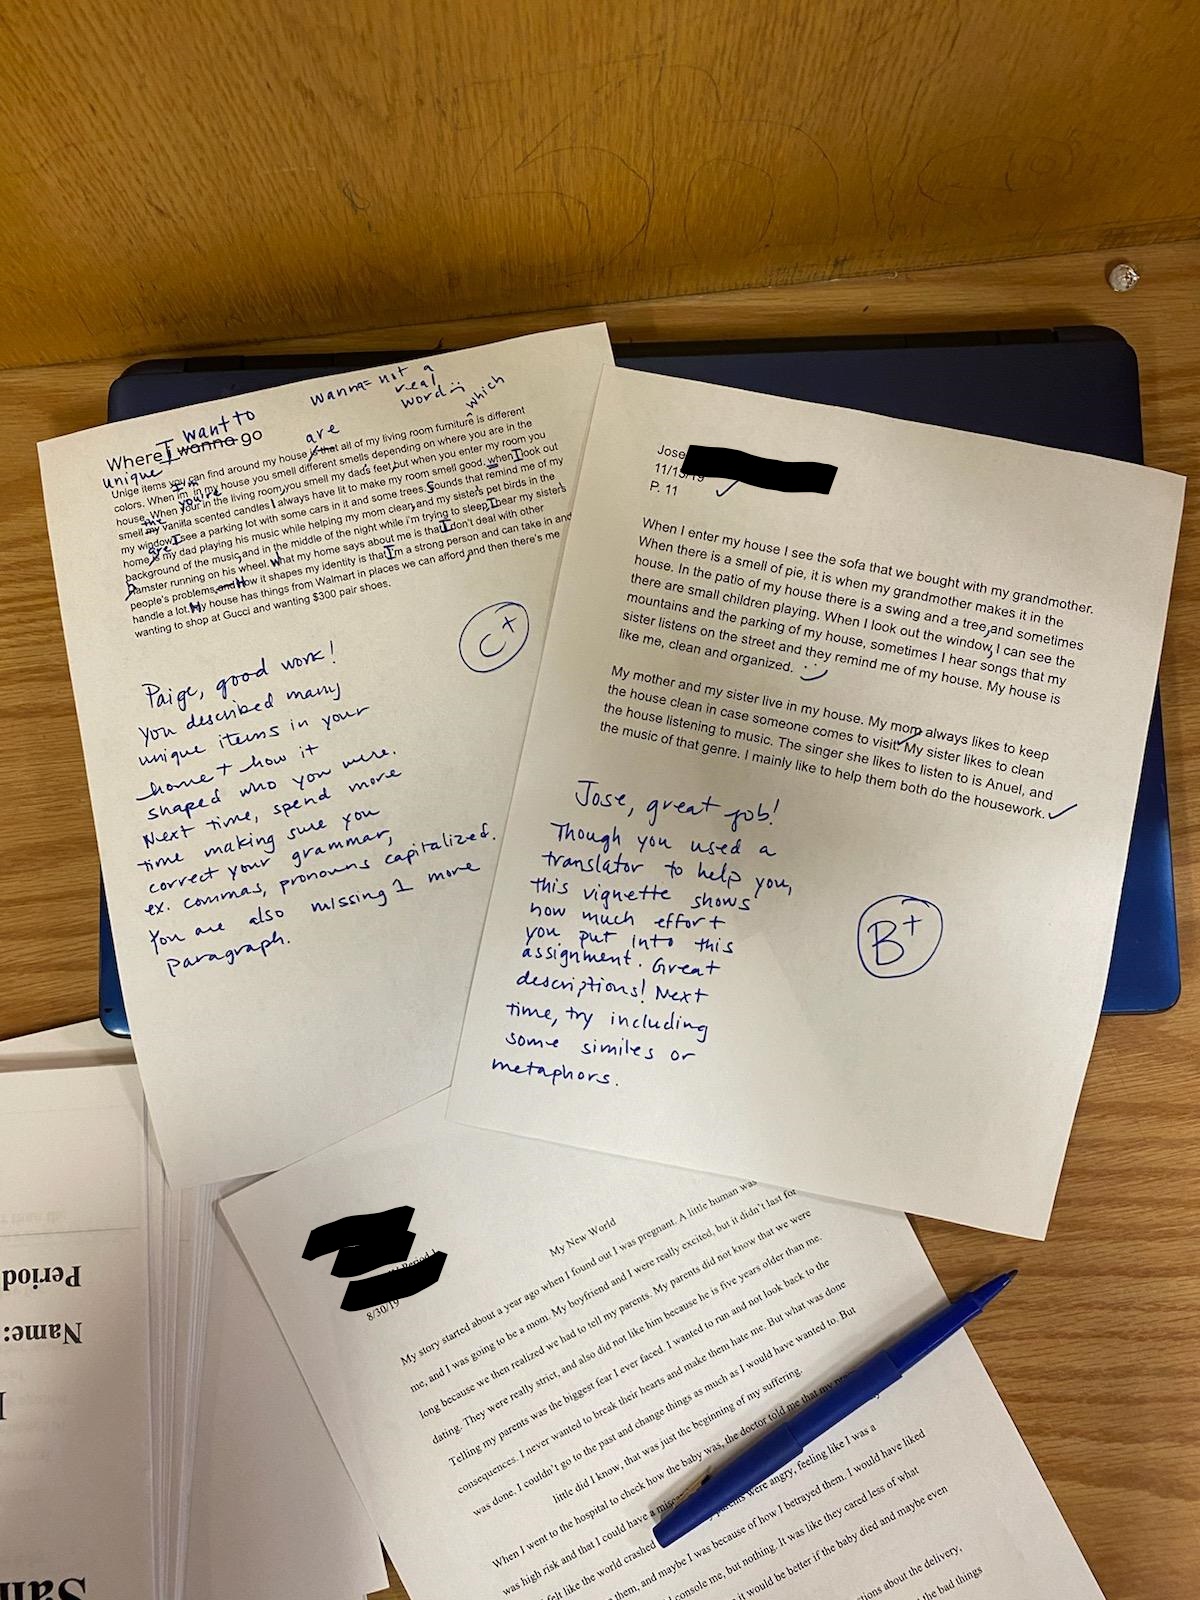 wanna = not a
real
word :)
which
I want to
Where I wanna go
are
unique
Unige items you can find around my house is that all of my living room furniture is different
colors. When im in my house you smell different smells depending on where you are in the
I'm
you're
house. When your in the living room, you smell my dad's feet, but when you enter my room you
smell my vanilla scented candles I always have lit to make my room smell good, when I look out
me
my window, I see a parking lot with some cars in it and some trees. Sounds that remind me of my
are
home is my dad playing his music while helping my mom clean, and my sister's pet birds in the
background of the music, and in the middle of the night while i'm trying to sleep, I hear my sister's
hamster running on his wheel. What my home says about me is that I don't deal with other
people's problems, and How it shapes my identity is that I'm a strong person and can take in and
handle a lot. My house has things from Walmart in places we can afford, and then there's me
wanting to shop at Gucci and wanting $300 pair shoes.
C+
Paige, good work!
You described many
unique items in your
home + how it
shaped who you were.
Next time, spend more
time making sure you
correct your grammar,
ex. commas, pronouns capitalized.
You are also missing 1 more
paragraph.
Jose
11/15/19
P. 11
When I enter my house I see the sofa that we bought with my grandmother.
When there is a smell of pie, it is when my grandmother makes it in the
house. In the patio of my house there is a swing and a tree, and sometimes
there are small children playing. When I look out the window, I can see the
mountains and the parking of my house, sometimes I hear songs that my
sister listens on the street and they remind me of my house. My house is
like me, clean and organized. :)
My mother and my sister live in my house. My mom always likes to keep
the house clean in case someone comes to visit. My sister likes to clean
the house listening to music. The singer she likes to listen to is Anuel, and
the music of that genre. I mainly like to help them both do the housework.
Jose, great job!
Though you used a
translator to help you,
this vignette shows
how much effort
you put into this
assignment. Great
descriptions! Next
time, try including
some similes or
metaphors.
B+
Period 1
8/30/19
My New World
My story started about a year ago when I found out I was pregnant. A little human was
me, and I was going to be a mom. My boyfriend and I were really excited, but it didn't last for
long because we then realized we had to tell my parents. My parents did not know that we were
dating. They were really strict, and also did not like him because he is five years older than me.
Telling my parents was the biggest fear I ever faced. I wanted to run and not look back to the
consequences. I never wanted to break their hearts and make them hate me. But what was done
was done. I couldn't go to the past and change things as much as I would have wanted to. But
little did I know, that was just the beginning of my suffering.
When I went to the hospital to check how the baby was, the doctor told me that my
was high risk and that I could have a
felt like the world crashed parents were angry, feeling like I was a
them, and maybe I was because of how I betrayed them. I would have liked
console me, but nothing. It was like they cared less of what
it would be better if the baby died and maybe even
about the delivery,
the bad things
Period
Name: